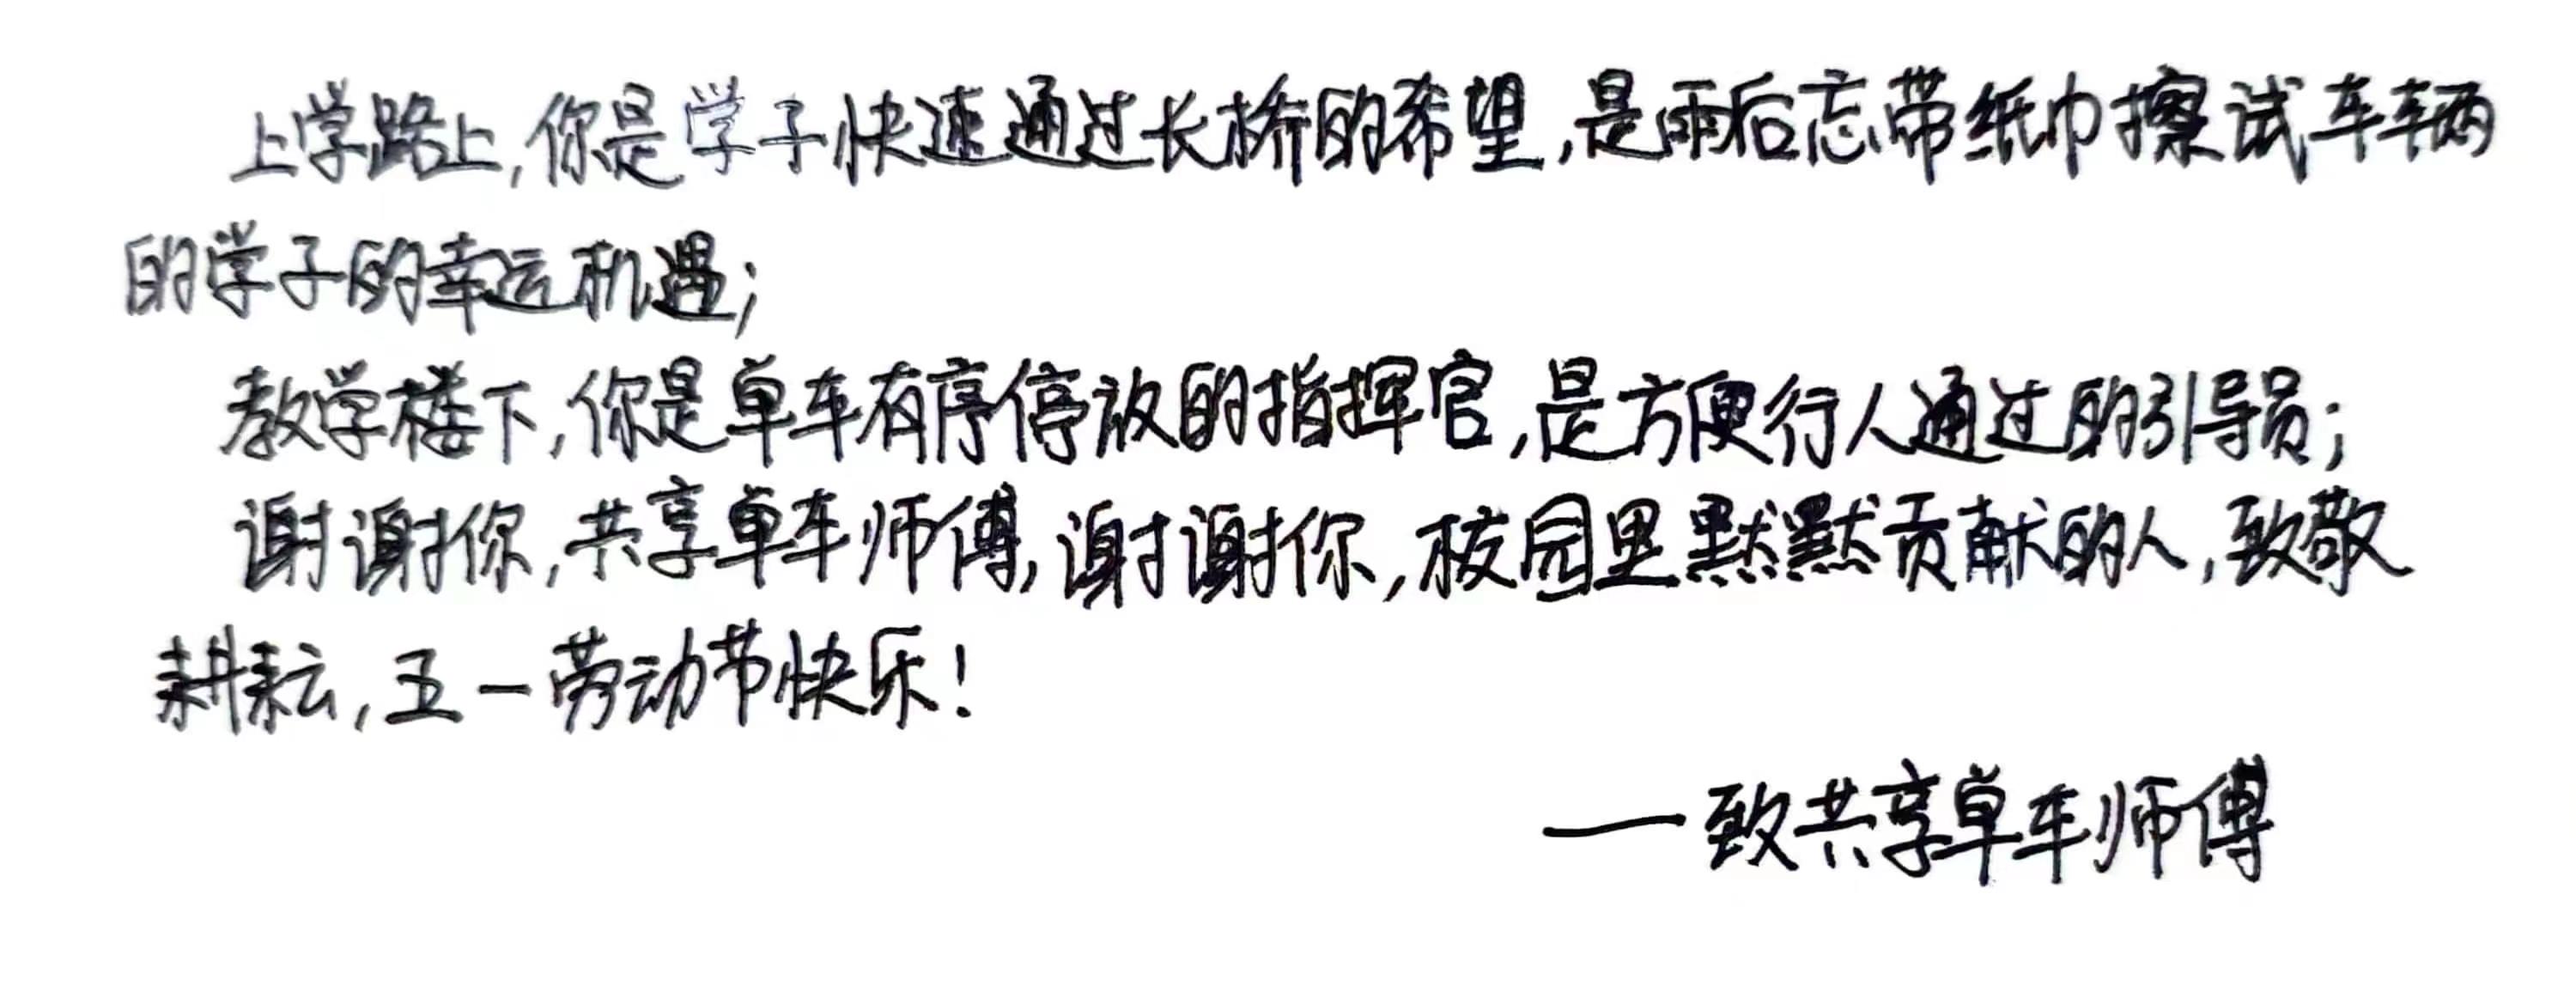 上学路上,你是学子快速通过长桥的希望,是雨后忘带纸巾擦试车辆
的学子的幸运机遇;
教学楼下,你是单车有序停放的指挥官,是方便行人通过的引导员;
谢谢你,共享单车师傅,谢谢你,校园里默默贡献的人,致敬
耕耘,五一劳动节快乐!
——致共享单车师傅